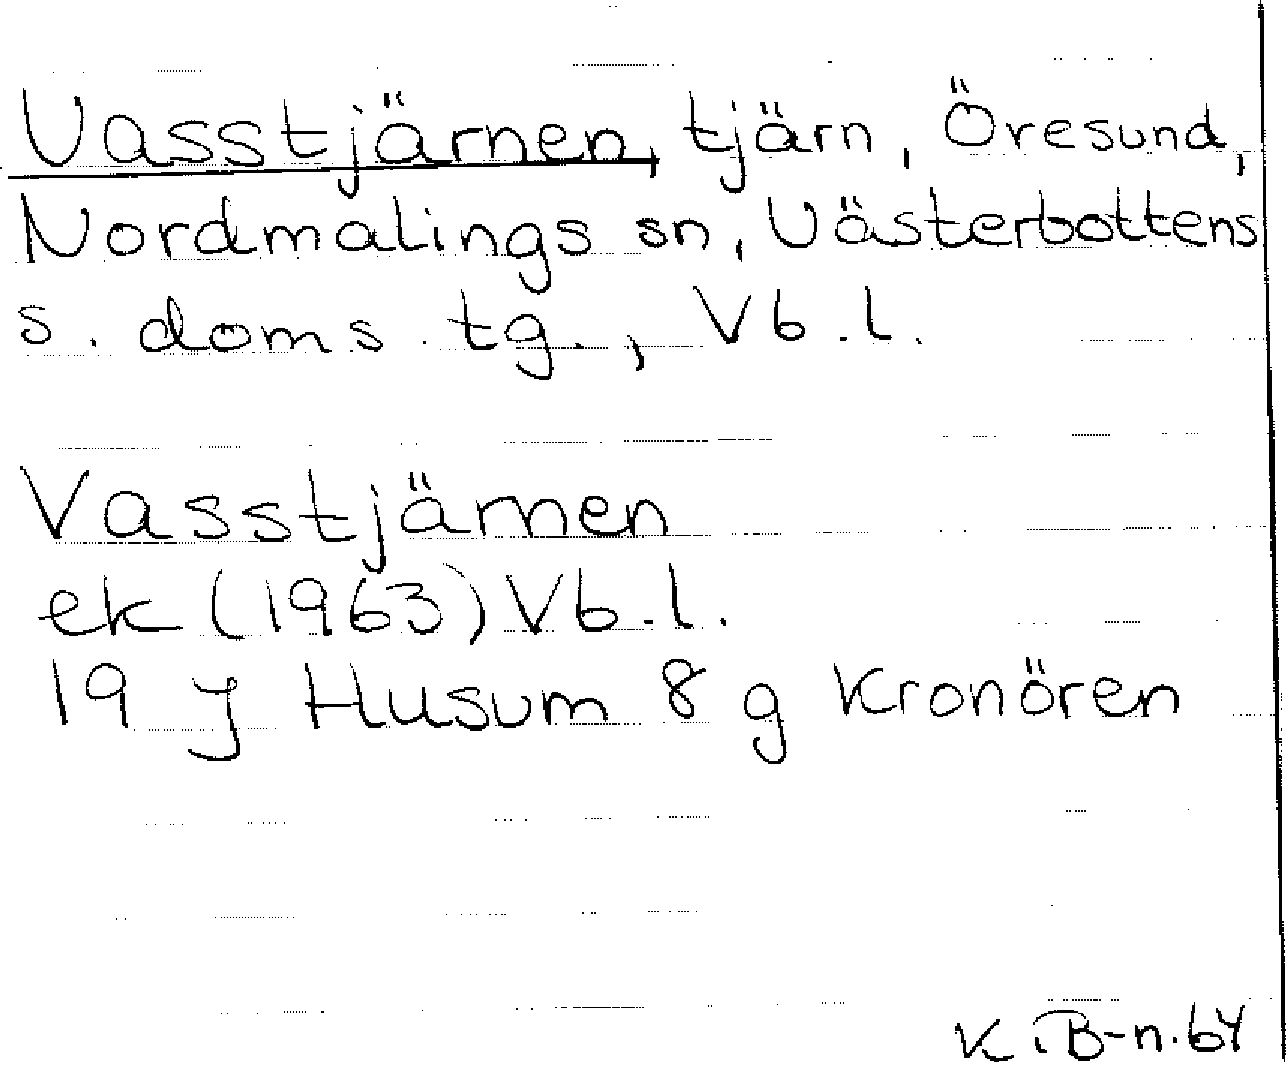 Vasstjärnen, tjärn, Öresund,
Nordmalings sn, Västerbottens
s. doms. tg., Vb.l.
Vasstjärnen
ek (1963) Vb.l.
19 J Husum 8 g Kronören
K.B-n.64